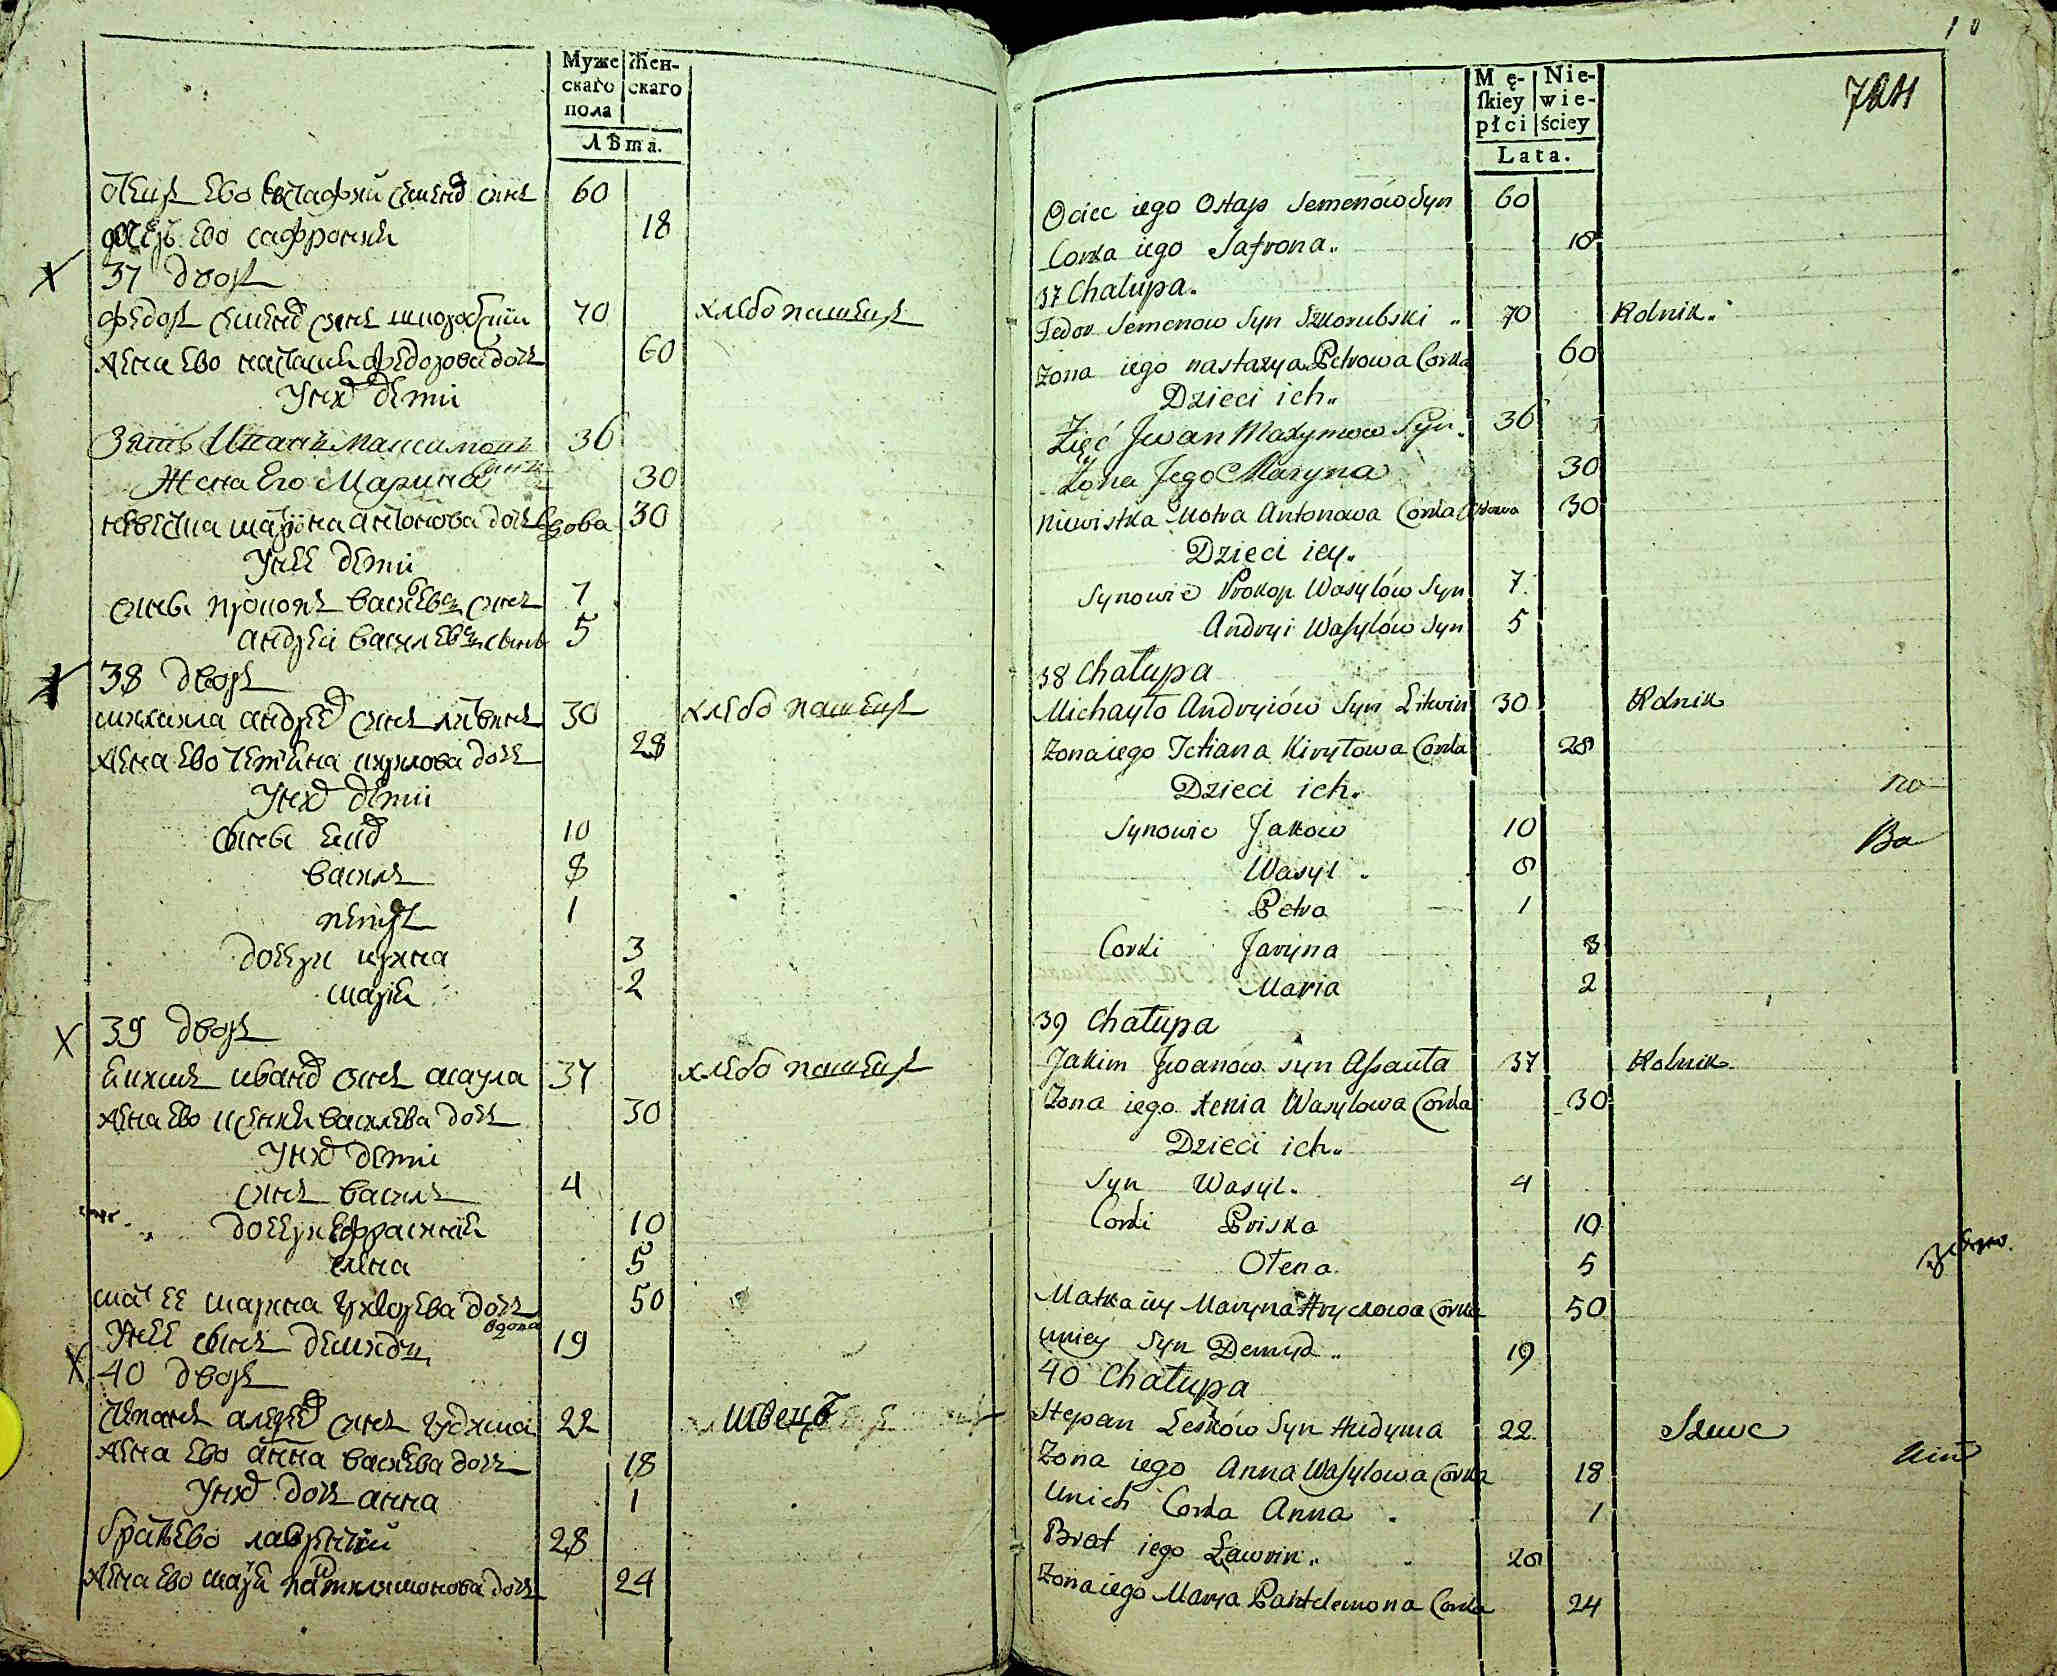 Муже Жен-
скаго скаго
пола
Лѣта.
отецъ ево Евстафий семенов синъ 60
ево сафрония 18
37 дворъ
федоръ семенов синъ 70 хлебопашецъ
жена ево настасия федорова дочь 60
У них дети
Зять Иванъ Максимовъ 36
сынъ
Жена Его Марина 30
невестка матрона антонова дочь вдова 30
У нее дети
сыны прокопъ васильевъ синъ 7
андрей василевъ сынъ 5
38 дворъ
михайла андреев синъ литвинъ 30 хлебопашецъ
жена ево тетяна кирилова дочь 28
У них дети
сыны яков 10
василь 8
петръ 1
дочери ирина 3
мария 2
39 дворъ
якимъ иванов синъ асаула 37 хлебопашецъ
жена ево ксения василева дочь 30
У них дети
синъ василь 4
дочери 10
елена 5
мат ее марина григорева дочь 50
вдова
У нее сынъ демидъ 19
40 дворъ
степанъ алексеев синъ гудима 22 швецъ
жена ево анна василева дочь 18
У них дочь анна 1
братъ ево лаврентий 28
жена ево мария пантилимонова дочь 24
10
Mę- Nie-
skiey wie-
płci ściey
Lata.
Ociec iego Ostap Semenów Syn 60
Corka iego Safrona 18
37 Chałupa.
Fedor Semenow Syn Szkorubski 70 Rolnik.
Żona iego nastazya Petrowa Corka 60
Dzieci ich
Zięć Jwan Maxymow Syn. 36
Żona Jego Maryna 30
Niewistka Motra Antonowa Corka Wdowa 30
Dzieci iey
Synowie Prokop Wasylów Syn 7
Andryi Wasylów Syn 5
38 Chałupa
Michayło Andryiów Syn Litwin 30 Rolnik
Żona iego Tetiana Kiryłowa Corka 28
Dzieci ich
no
Synowie Jakow 10
Ва
Wasyl 8
Petro 1
Corki Jaryna 3
Maria 2
39 Chałupa
Jakim Jwanow syn Assauła 37 Rolnik
Żona iego Xenia Wasylowa Corka 30
Dzieci ich
Syn Wasyl 4
Corki Priska 10
Ołena 5
Matka iey Maryna Hryckowa Corka 50
u niey Syn Demyd 19
40 Chałupa
Stepan Leskow Syn Hudyma 22 Szewc
Żona iego Anna Wasylowa Corka 18
U nich Corka Anna 1
Brat iego Ławrin 28
Żona iego Marya Pantelemona Corka 24